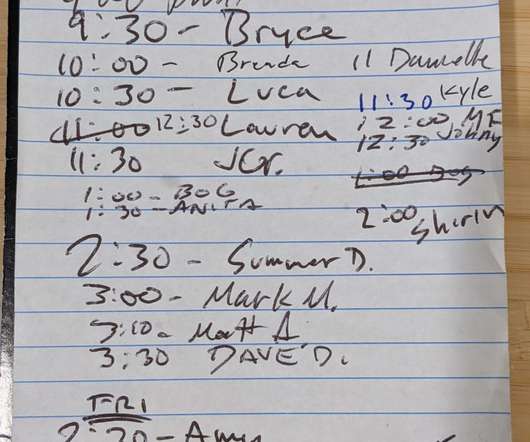 9:30 - Bryce
10:00 - Brenda
11 Danielle
10:30 - Luca
11:30 Kyle
11:00 12:30 Lauren
12:00 ME
11:30 JGr.
12:30 Johnny
1:00 - BOG
1:00 Bog
1:30 - ANITA
2:00 Shirin
2:30 - Summer D.
3:00 - Mark M.
3:10 - Matt A.
3:30 DAVE D.
FRI
2:30 - Amy